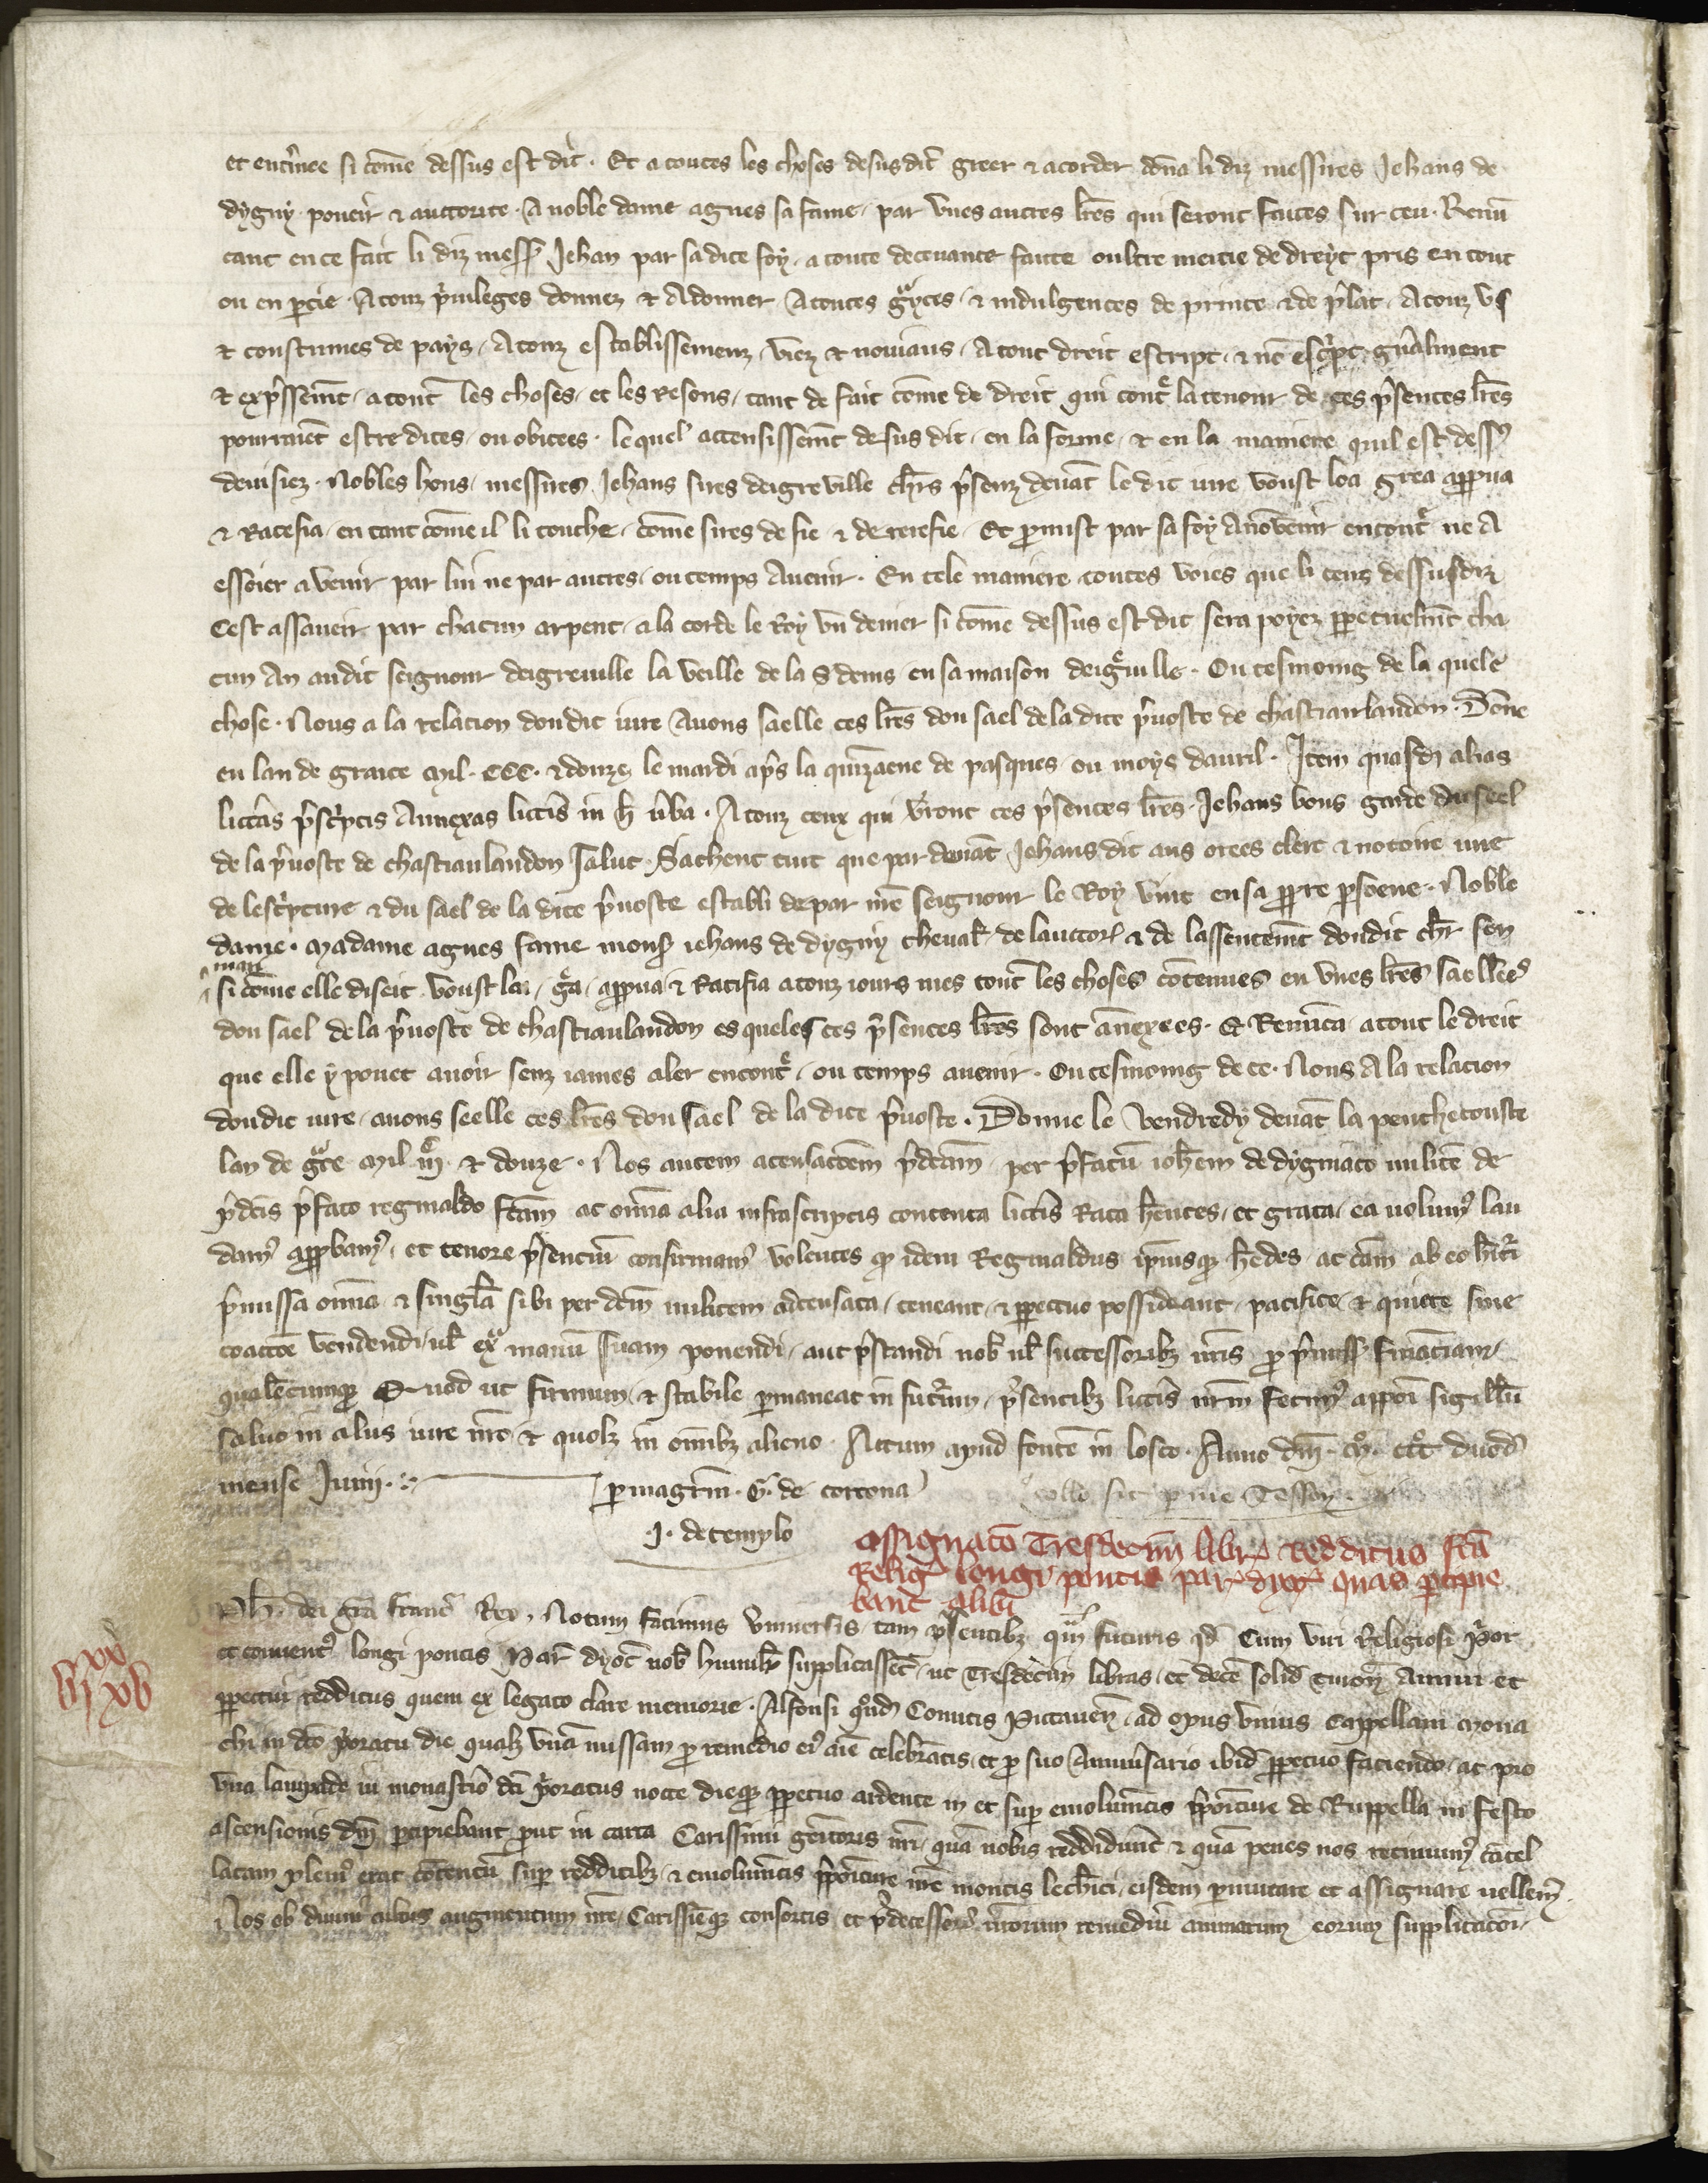 et ent̾inee si cōme dessus est dit̾. Et a toutes les choses desusdit̾ greer ⁊ acorder dōna li diz messires Jehans de
dyguy poueir ⁊ auctorite. A noble dame agnes sa fame par vnes autres lr̄es qui seront faites sur ceu. Renū
cant en ce fait li diz mess̾ Jehan par sa dite foy, a toute deceuance faite oultre meitie de dreyt pris en tout
ou en p̱tie. A touz p̾uileges donnez ⁊ A donner A toutes gͣyces ⁊ indulgences de prince ⁊ de p̾lat. A touz vs
⁊ coustumes de pays, A touz establissemenz viez ⁊ nouiaus. A tout dreit escript ⁊ nō esc̾pt gn̄alment
⁊ exp̾ssem̄t a tout̾ les choses et les resons, tant de fait cōme de dreit qui cont̾ la tenour de ces p̾sentes lr̄es
pourruiēt estre dites ou obicees. le quel accensissem̄t desus dit en la forme ⁊ en la maniere quil est dess̾
deuisiez. Nobles hons messires Jehans sires deigreville chr̄s p̾senz deuāt le dit iure voust loa grea aꝓua
⁊ Ratefia en tant cōme il li touche, cōme sires de fie ⁊ de rerefie. Et ꝓmist par sa foy A nō venir encont̾ ne A
essoier a venir par lui ne par autres ou temps Auenir. En tele maniere toutes voies que li cens dessusdiz
Cest assaueir par chacun arpent a la corde le Roy vn denier si cōme dessus est dit sera poyez ꝑpetuelm̄t cha
cun An audit seignour deigreuille la veille de la S denis en sa maison deig̾uille. Ou tesmoing de la quele
chose. Nous a la relacion doudit iure Auons saelle ces lr̄es dou sael de la dite p̾uoste de chastiaulandon. Dōne
en lan de graice Mil. CCC. ⁊ douze le mardi ap̾s la quizaene de pasques ou moys dauril. Item quasdā alias
litt̾as p̾sc̾ptis Annexas litt̾is in h̄ ūba. A touz ceux qui v̾ront ces p̾sentes lr̄es. Jehans bons garde du seel
de la p̾uoste de chastiaulandon salut. Sachent tuit que par deuāt Jehans dit aus orees clerc ⁊ notoire iure
de lesc̾pture ⁊ du sael de la dite p̾uoste establi de par nr̄e seignour le Roy vint en sa ꝓpre ꝑsoene. Noble
dame. Madame agnes fame mons̾ iehans de dyguy cheual̾ de lauctor̾ ⁊ de lassentem̄t doudit chr̄ son
mari
si cōme elle diseit voust loa, g̾a, aꝓua ⁊ Ratifia a touz iours mes tout̾ les choses cōtenues en vnes lr̄es saellees
dou sael de la p̾uoste de chastiaulandon es queles ces p̾sentes lr̄es sont ānexees. Et Renūca a tout le dreit
que elle y pouet auoir senz iames aler encont̾ ou temps auenir. Ou tesmoing de ce. Nous A la relacion
doudit iure auons seelle ces lr̄es dou sael de la dite p̾uoste. Donne le vendredy deuāt la penthecouste
lan de gͣce Mil iijͨ ⁊ douze. Nos autem acensactōem p̾dc̄am per p̾fatū ioh̄em de dygniaco militē de
p̾dc̄is p̾fato reginaldo fc̄am ac om̄ia alia infrascriptis contenta litt̾is Rata h̄entes, et grata, ea volum⁹ lau
dam⁹ aꝓbam⁹, et tenore p̾sentiū confirmam⁹ volentes ꝙ idem Reginaldus ip̄iusq̄ h̄edes ac cām ab eo h̄it̾i
p̾missa om̄ia ⁊ singl̄a sibi per dc̄m militem adcensata, teneant, ⁊ ꝑpetuo possideant, pacifice, ⁊ quiete sine
coactōe vendendi ul̾ exͣ manū suam ponendi, aut p̾standi nob̾ ul̾ successoribꝫ nr̄is ꝓ p̾miss̾ finātiam
qual̄ecumq̄ Quod ut firmum, ⁊ stabile ꝑmaneat in fut̾um, p̾sentibꝫ litt̾is nr̄m fecim⁹ apponi sigillū
saluo in aliis iure nr̄o ⁊ quolꝫ in om̄ibꝫ alieno. Actum apud fontē in losco. Anno dn̄i Mͦ. CCCͦ duod̾
mense Junii.
ꝑ magr̄m. G. de cortona
collō sit ꝑ me Tesson.
J. de templo
Assignatō Tresdecim libr̾ redditus fc̄a
Relig̾ longi pontis par̾ dyoc̾ quas ꝑcipie
bant alibi
Ph. dei gr̄a franc̾ Rex, Notum facimus vniuersis tam p̾sentibꝫ quā futuris qd̾ Cum viri Religiosi P̾or
et conuent⁹ longi pontis Par̾ dyoc̾ nob̾ humil̾r supplicassēt ut Tresdecim libras et decē solid̾ turon̾ Annui et
ꝑpetui redditus quem ex legato clare memorie. Alfonsi qͦnd̄ Comitis Pictauen̾, ad opus vnius Cappellani Mona
chi in dc̄o p̾oratu die qualꝫ vnā missam ꝓ remedio ei⁹ aīe celebrātis, et ꝓ suo Anniu̾sario ibid̾ ꝑpetuo faciendo, ac pro
vna lampade in monast̾io dc̄i p̾oratus nocte dieq̄ ꝑpetuo ardente in et suꝑ emolumētis p̾pōiture de Ruppella in festo
ascensionis dn̄i ꝑcipiebant ꝓut in carta Carissimi genitoris nr̄i, quā nobis reddidunt ⁊ quā penes nos retinuim⁹ cācel
latam pleni⁹ erat cōtentū suꝑ redditibꝫ ⁊ emolumētis p̾pōiture nr̄e montis lech̾ici, eisdem ꝑmutare et assignare uellem⁹.
Nos ob diuini cultus augmentum nr̄e, Carissieq̄ consortis et p̾decessor̾ nr̄orum remediū animarum eorum supplicacōi